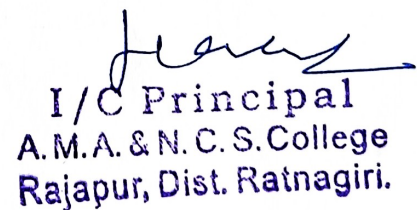 I/C Principal
A. M. A. & N. C. S. College
Rajapur, Dist. Ratnagiri.